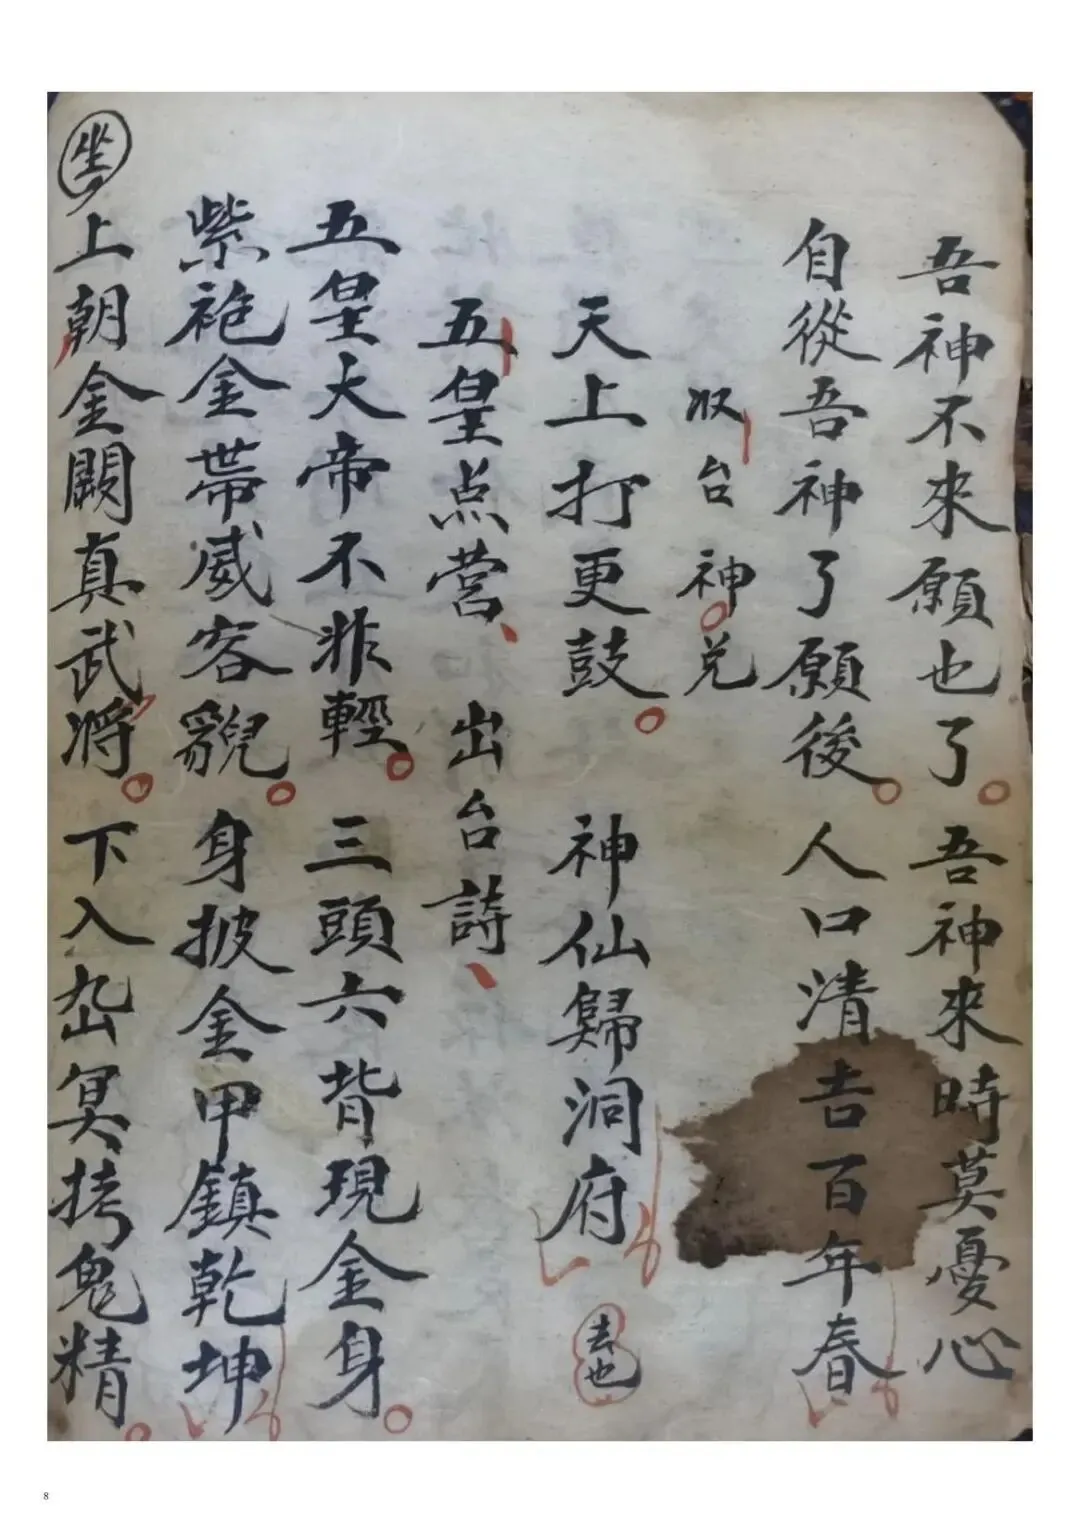 吾神不來願也了。吾神來時莫憂心
自從吾神了願後。人口清吉百年春
収台神兑
天上打更鼓。神仙歸洞府 去也
五皇点营、出台詩、
五皇大帝不非輕。三頭六背現金身。
紫袍金带威容貌。身披金甲鎮乾坤
坐 上朝金闕真武将。下入冥拷鬼精。
8